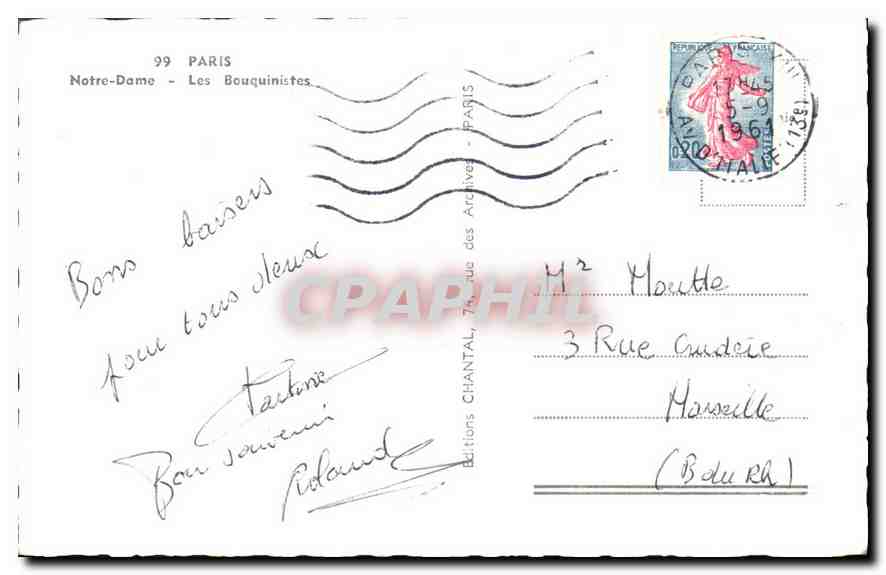 99 PARIS
Notre-Dame - Les Bouquinistes
Bons baisers
pour tous deux
Martine
Bon souvenir
Roland
Editions CHANTAL, 74, rue des Archives - PARIS
REPUBLIQUE FRANÇAISE
0,20
POSTES
PARIS XIII
17H45
5-9
1961
AV. D'ITALIE (13e)
Mr Moutte
3 Rue
Marseille
(B du Rh)
CPAPHIL